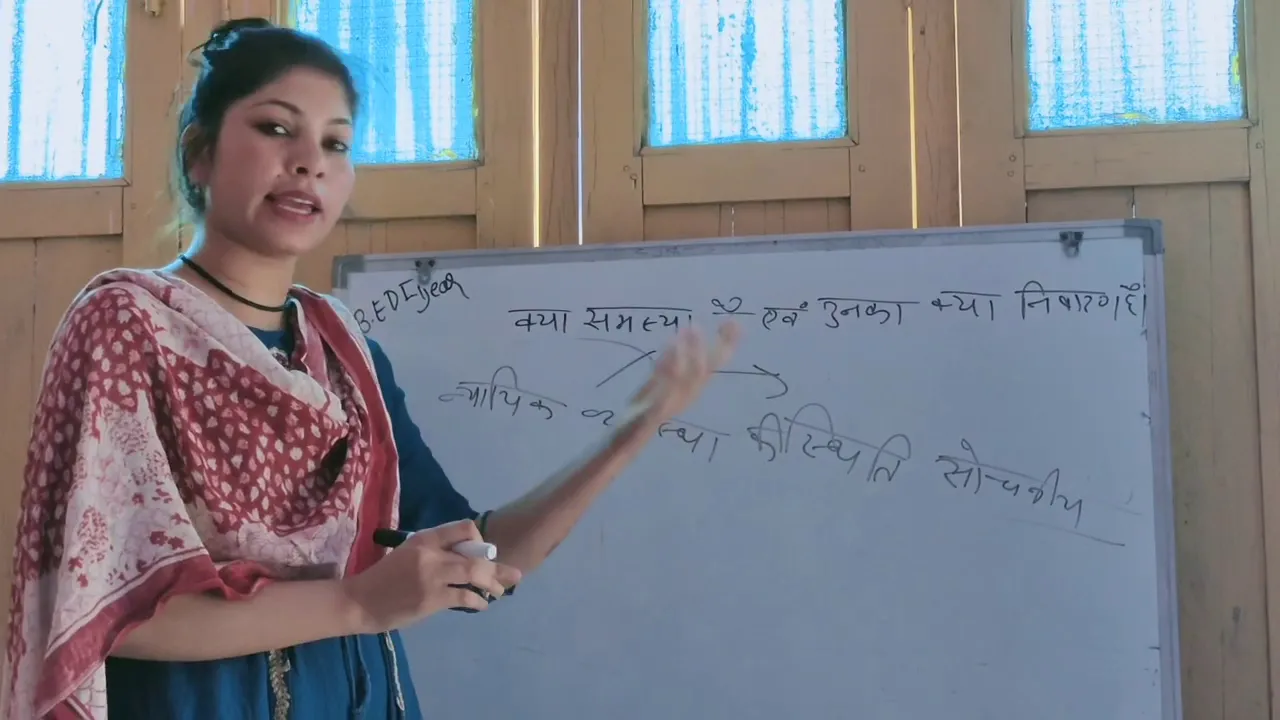 B.ED I year
क्या समस्या है एवं उनका क्या निवारण है।
न्यायिक व्यवस्था की स्थिति सोचनीय